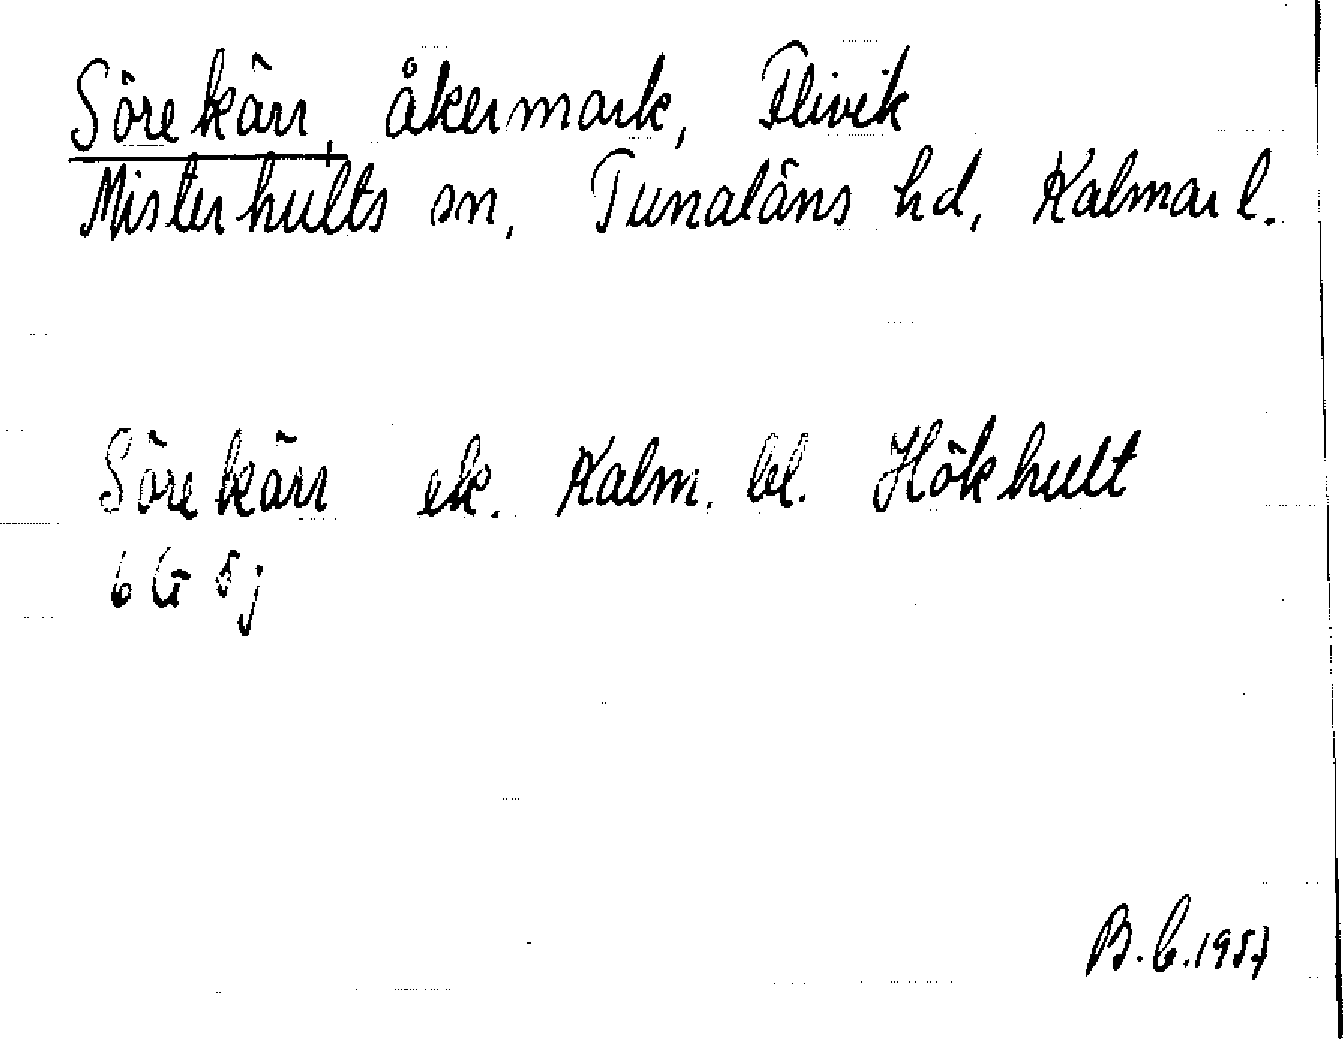 Sörekärr, åkermark, Flivik
Misterhults sn, Tunaläns hd, Kalmar l.
Sörekärr ek. Kalm. bl. Hökhult
6 G 5 j
B.C. 1957